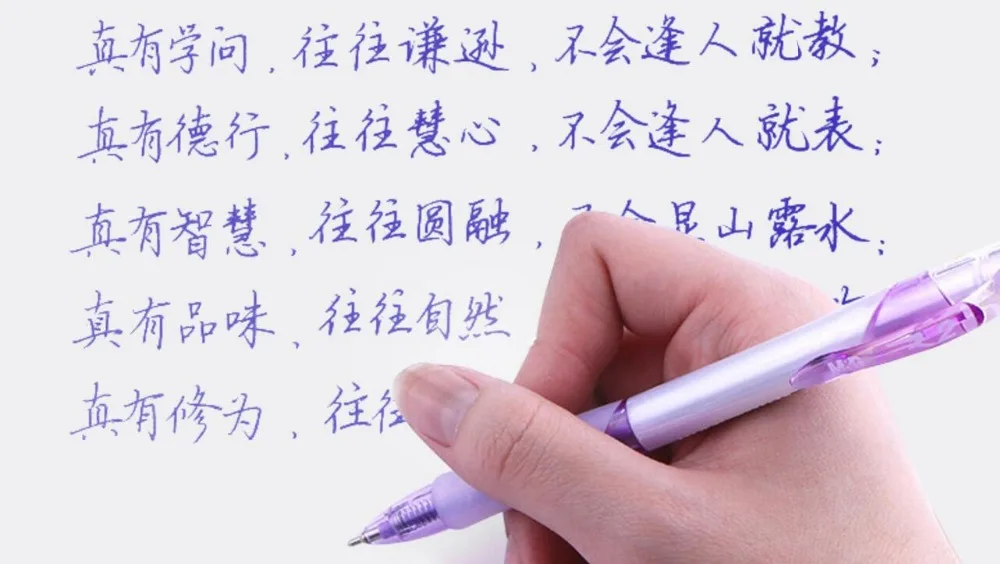 真有学问，往往谦逊，不会逢人就教；
真有德行，往往慧心，不会逢人就表；
真有智慧，往往圆融，不会显山露水；
真有品味，往往自然
真有修为，往往